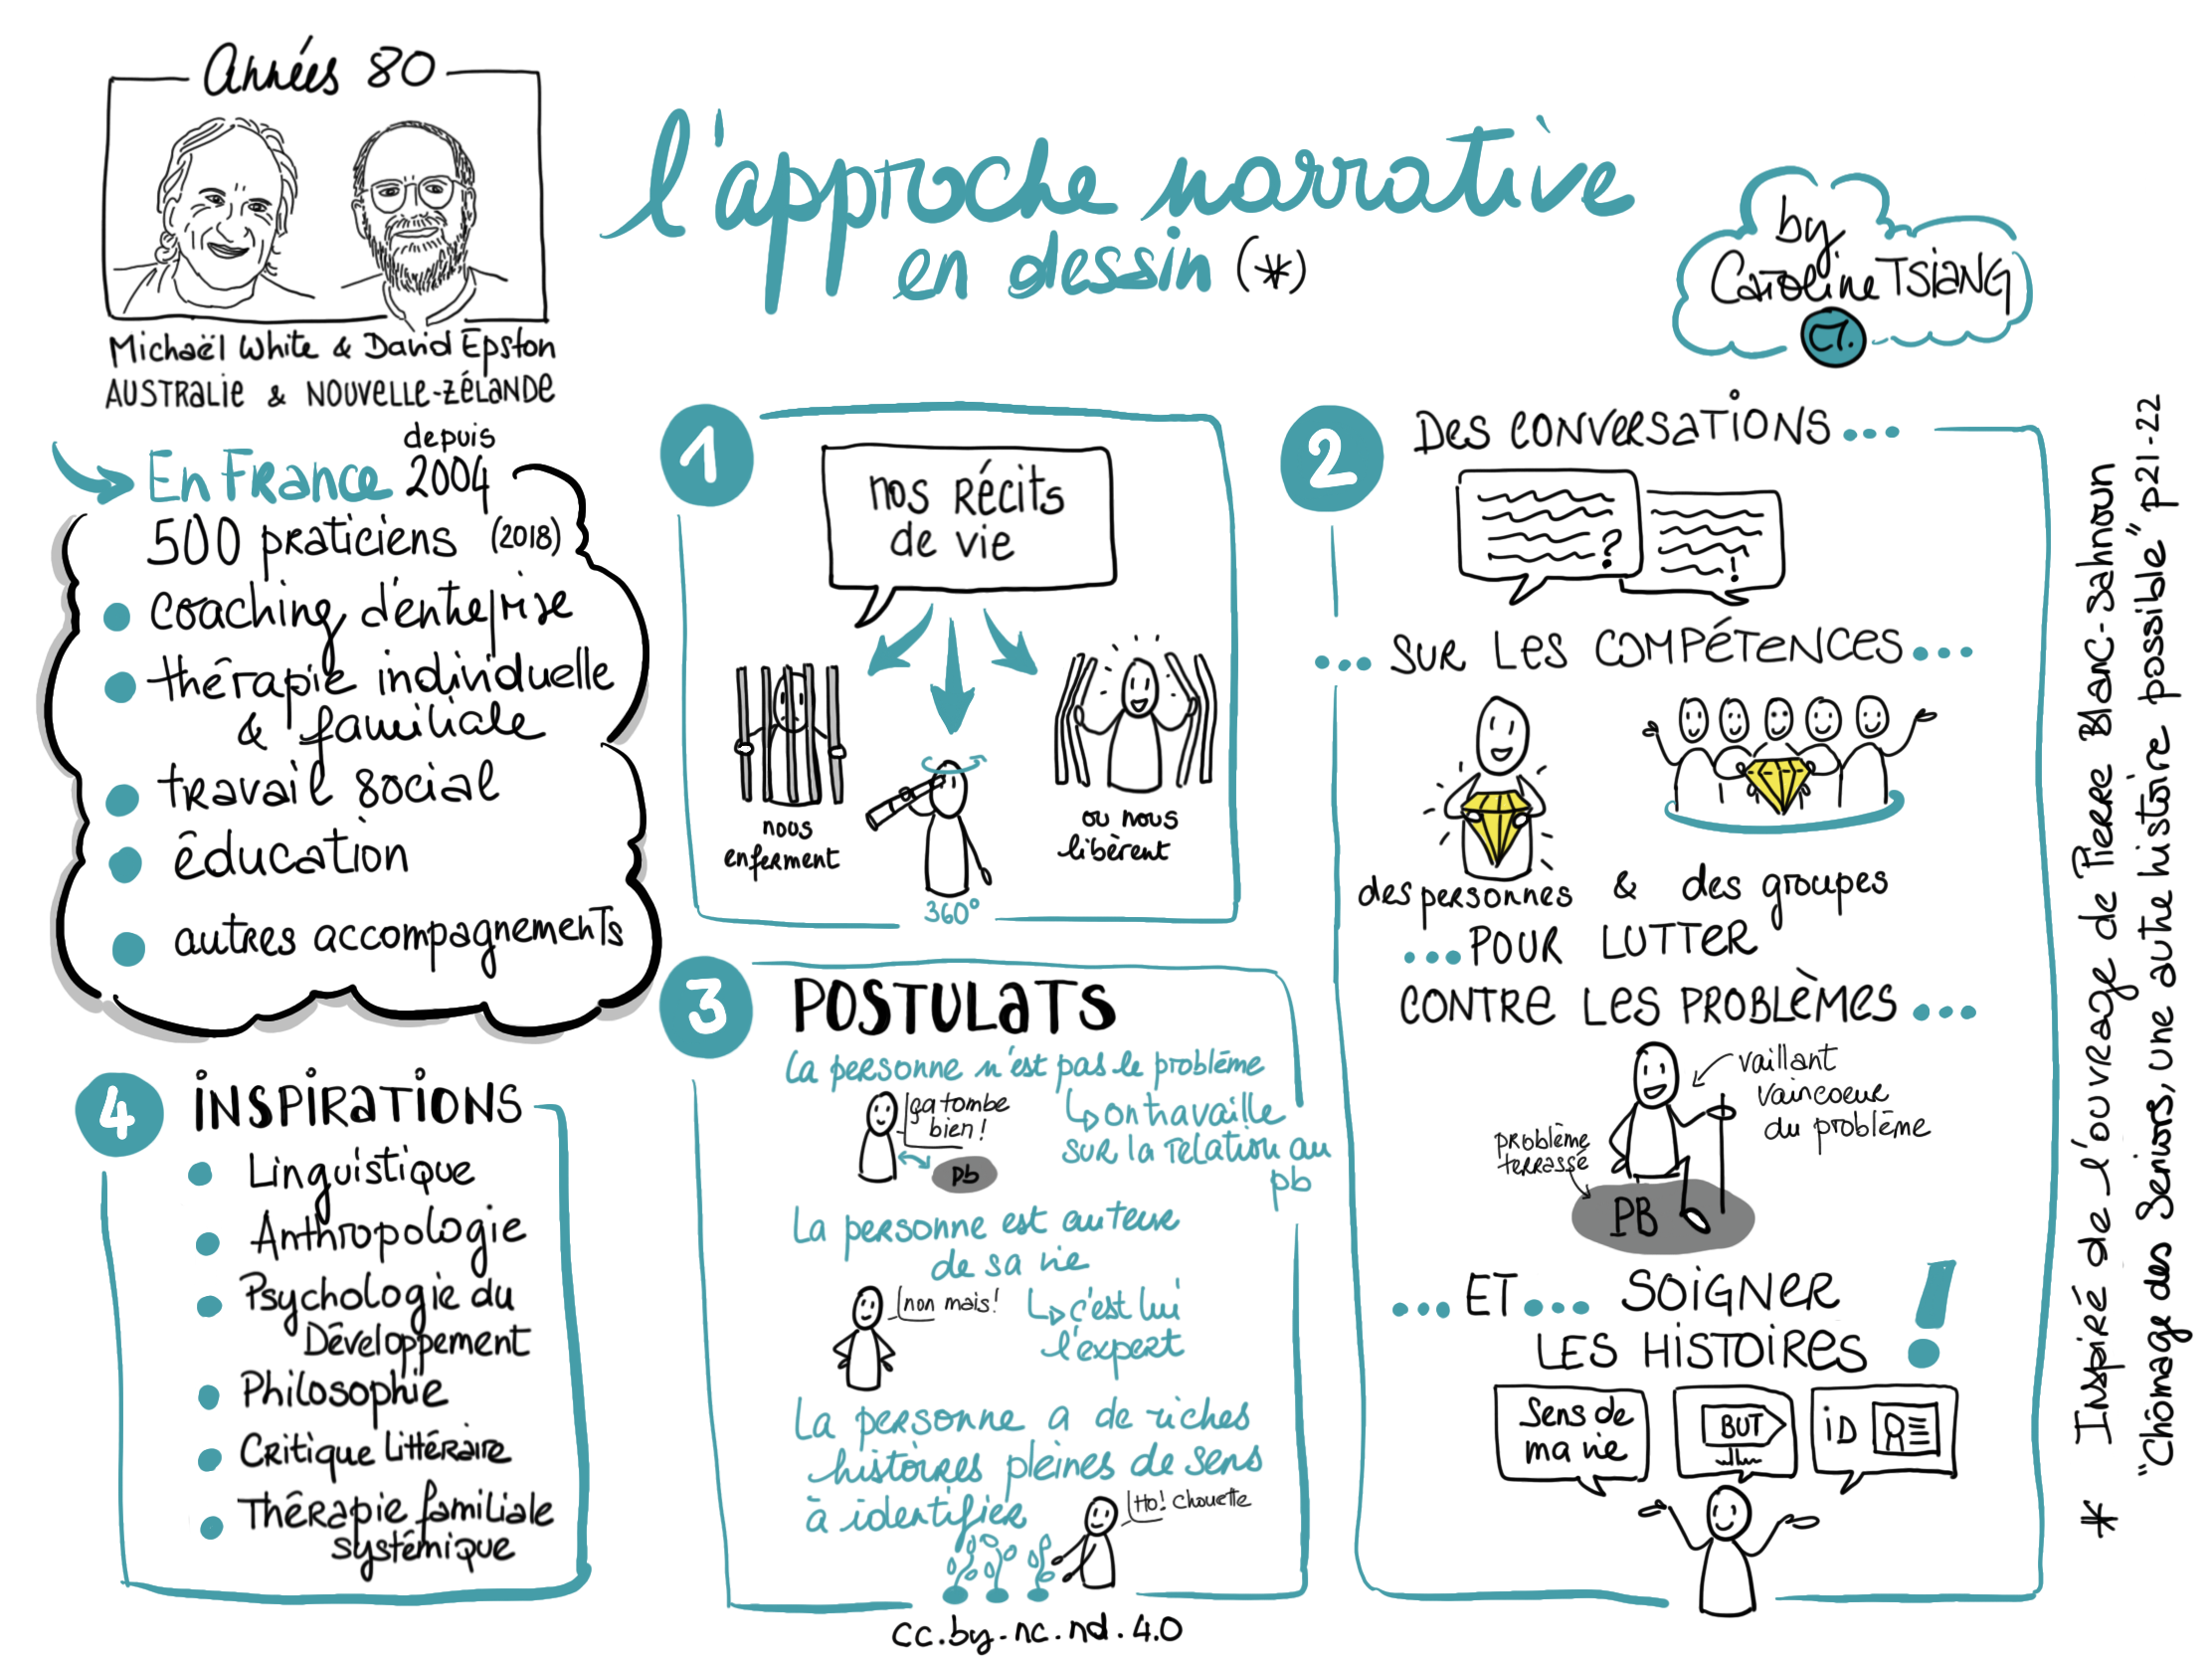 Années 80
Michaël White & David Epston
AUSTRALIE & NOUVELLE-ZÉLANDE
l'approche narrative
en dessin (*)
by
Caroline TSIANG
CT.
En France depuis
2004
500 praticiens (2018)
coaching d'entreprise
thérapie individuelle
& familiale
travail social
éducation
autres accompagnements
1
nos Récits
de vie
nous
enferment
360°
ou nous
libèrent
2
Des conversations...
?
!
... sur les compétences...
des personnes & des groupes
... pour lutter
contre les problèmes...
vaillant
vaincoeur
du problème
problème
terrassé
PB
... ET... soigner
les histoires !
Sens de
ma vie
BUT
iD
3
POSTULATS
La personne n'est pas le problème
ça tombe
bien !
pb
↳ on travaille
sur la relation au
pb
La personne est auteur
de sa vie
non mais !
↳ c'est lui
l'expert
La personne a de riches
histoires pleines de sens
à identifier
Ho! chouette
4
INSPIRATIONS
Linguistique
Anthropologie
Psychologie du
Développement
Philosophie
Critique Littéraire
Thérapie familiale
systémique
cc.by-nc.nd.4.0
* Inspiré de l'ouvrage de Pierre Blanc-Sahnoun
"Chômage des Seniors, une autre histoire possible" p21-22